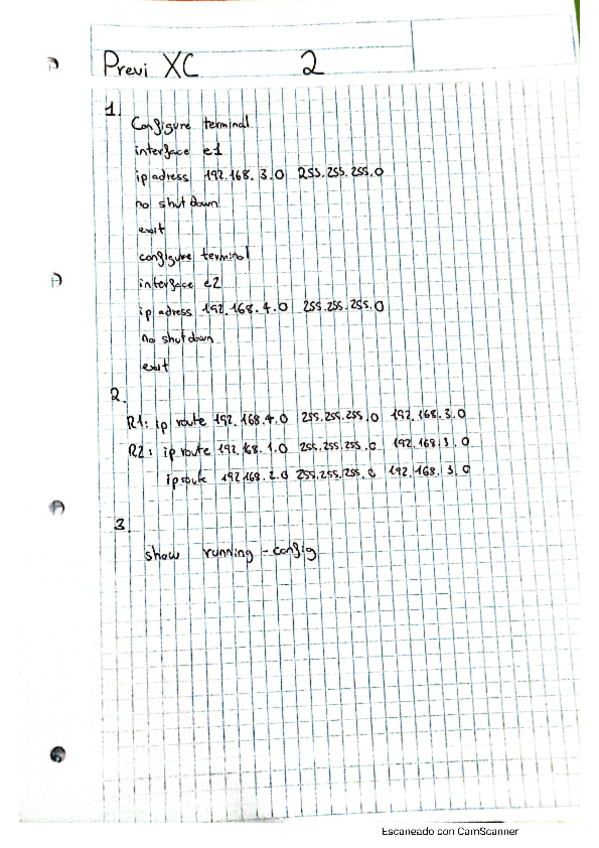 Previ XC 2
1.
Configure terminal
interface e1
ip adress 192.168.3.0 255.255.255.0
no shutdown
exit
configure terminal
interface e2
ip adress 192.168.4.0 255.255.255.0
no shutdown
exit
2.
R1: ip route 192.168.4.0 255.255.255.0 192.168.3.0
R2: ip route 192.168.1.0 255.255.255.0 192.168.3.0
ip route 192.168.2.0 255.255.255.0 192.168.3.0
3.
show running-config
Escaneado con CamScanner